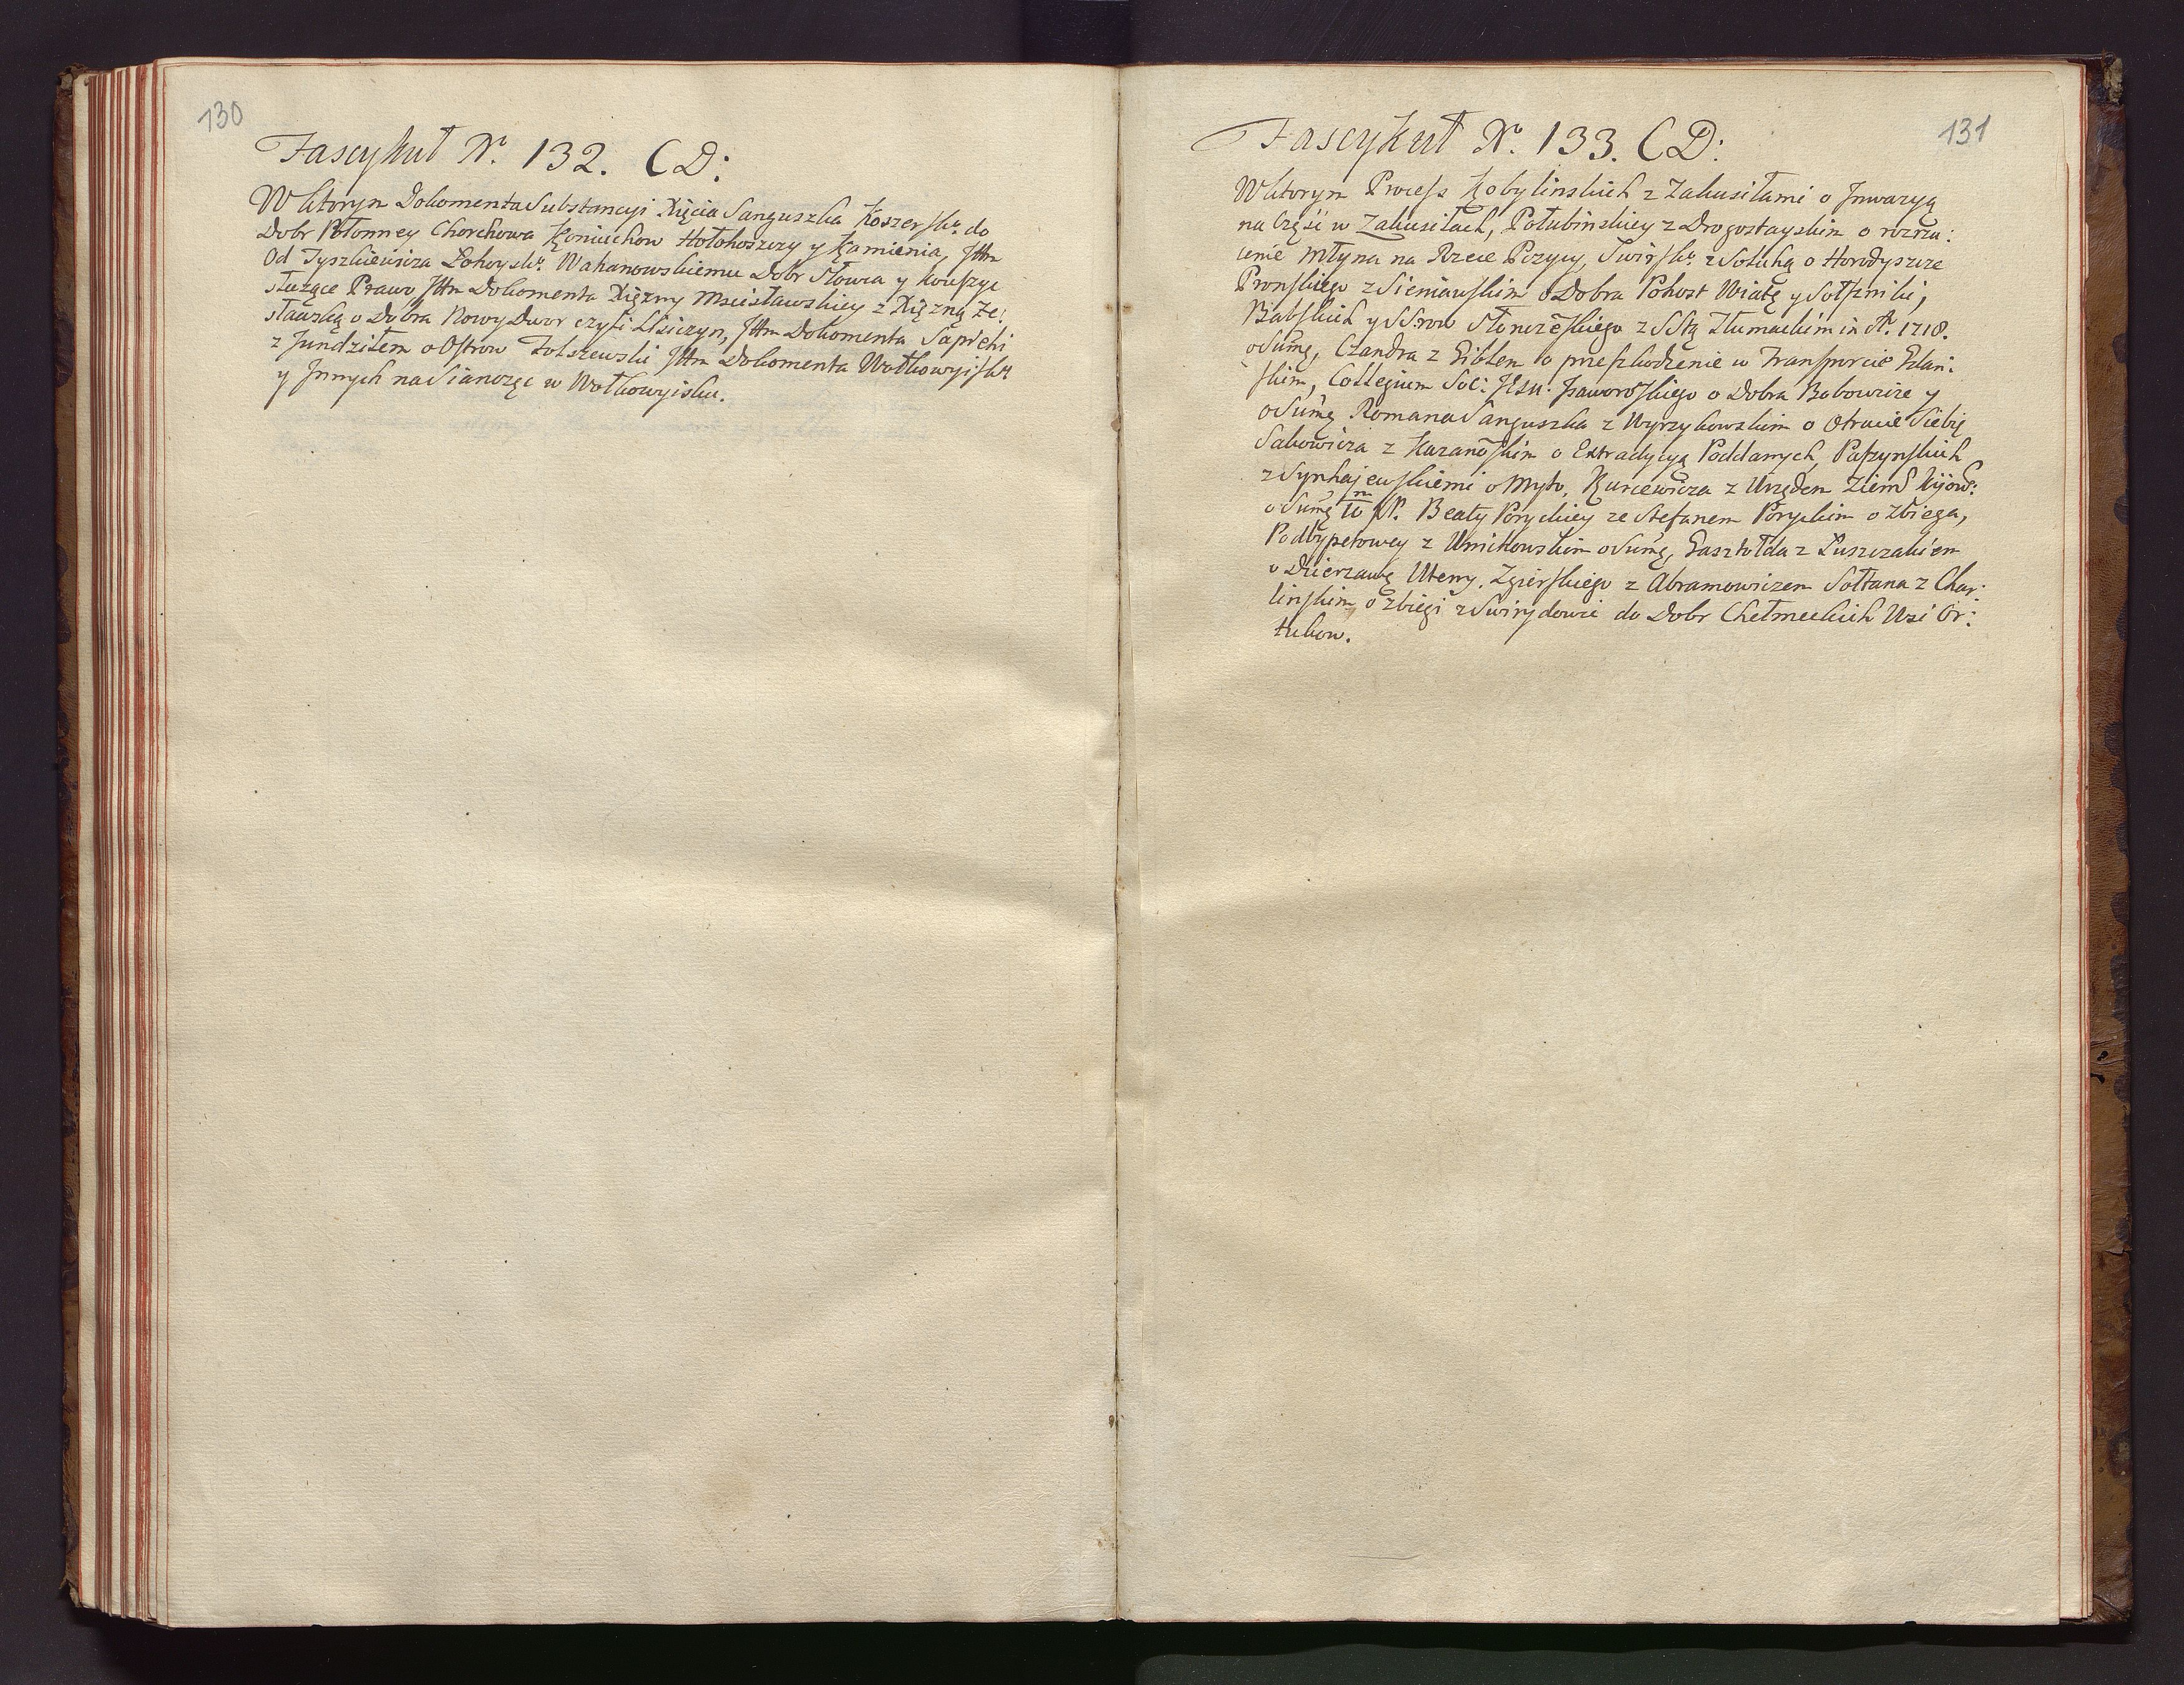 130
Fascykuł Nr. 132. CD:
W ktorym Dokomenta Substancyi Xięcia Sanguszka Koszersko: do
Dobr Połonney Chorchowa Koniuchow Hołohoszczy y Kamienia, Ittm
Od Tyszkiewicza Łohoysko: Wahanowskiemu Dobr Słowra y
służące Prawo Ittm Dokomenta Xiężny Mscisławskiey z Xiężną Ze:
sławską o Dobra Nowy Dwor czyli, Ittm Dokomenta Sapiehi
z Jundziłem o Ostrow Ittm Dokomenta
y Innych na Sianozęc w Wołkowyisku.
131
Fascykuł Nr. 133. CD:
W ktorym Process Kobylinskich z Zakusiłami o Inwazyą
na Części w Zakusiłach, Połubinskiey z Drogostayskim o rozrzu:
cenie Młyna na Rzece Pczycy, Swirsko: z Sołuhą o Horodyszcze
Pronskiego z Sieniawskim o Dobra Pohost Wiatę y,
Babskich y SSrow z SStą Tłumackim in Ao. 1718.
o Sumę, Czandra z Giblem o przeszkodzenie w Transporcie Gdan:
skim, Collegium Soc: Jesu: Jaworoskiego o Dobra Bobowicze y
o Sumę Romana Sanguszka z Wyrzykowskim o Otrucie Siebie
Sakowicza z Kazanoskim o Extradycyą Poddanych, Paszynskich
z o Myto, Kurcewicza z Urzędem Ziemd Kijows:
o Sumę Beaty Poryckiey ze Stefanem Poryckim o Zbiega,
Podbypetowey z Umickowskim o Sumę, Gasztołda z Łuszczakiem
o Dzierzawę Uteny. Zgierskiego z Abramowiczem Sołtana z Char:
linskim o Zbiegi z Swirydowic do Dobr Chełmeckich Wsi Or:
tukow.